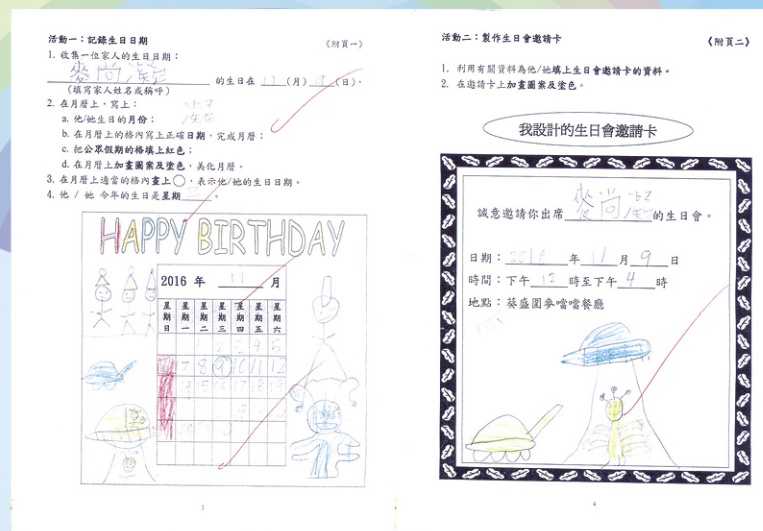 活動一：記錄生日日期
《附頁一》
1. 收集一位家人的生日日期：
麥尚 的生日在 11 (月) 9 (日)。
(填寫家人姓名或稱呼)
2. 在月曆上，寫上：
a. 他/她生日的月份；
b. 在月曆的格內寫上正確日期，完成月曆；
c. 把公眾假期的格填上紅色；
d. 在月曆上加畫圖案及塗色，美化月曆。
3. 在月曆上適當的格內畫上○，表示他/她的生日日期。
4. 他 / 她 今年的生日是星期 三 。
HAPPY BIRTHDAY
2016 年 11 月
星期日 星期一 星期二 星期三 星期四 星期五 星期六
1 2 3 4 5
6 7 8 9 10 11 12
13 14 15 16 17 18 19
3
活動二：製作生日會邀請卡
《附頁二》
1. 利用有關資料為他/她填上生日會邀請卡的資料。
2. 在邀請卡上加畫圖案及塗色。
我設計的生日會邀請卡
誠意邀請你出席 麥尚 的生日會。
日期： 2016 年 11 月 9 日
時間：下午 12 時至下午 4 時
地點：葵盛圍麥噹噹餐廳
4